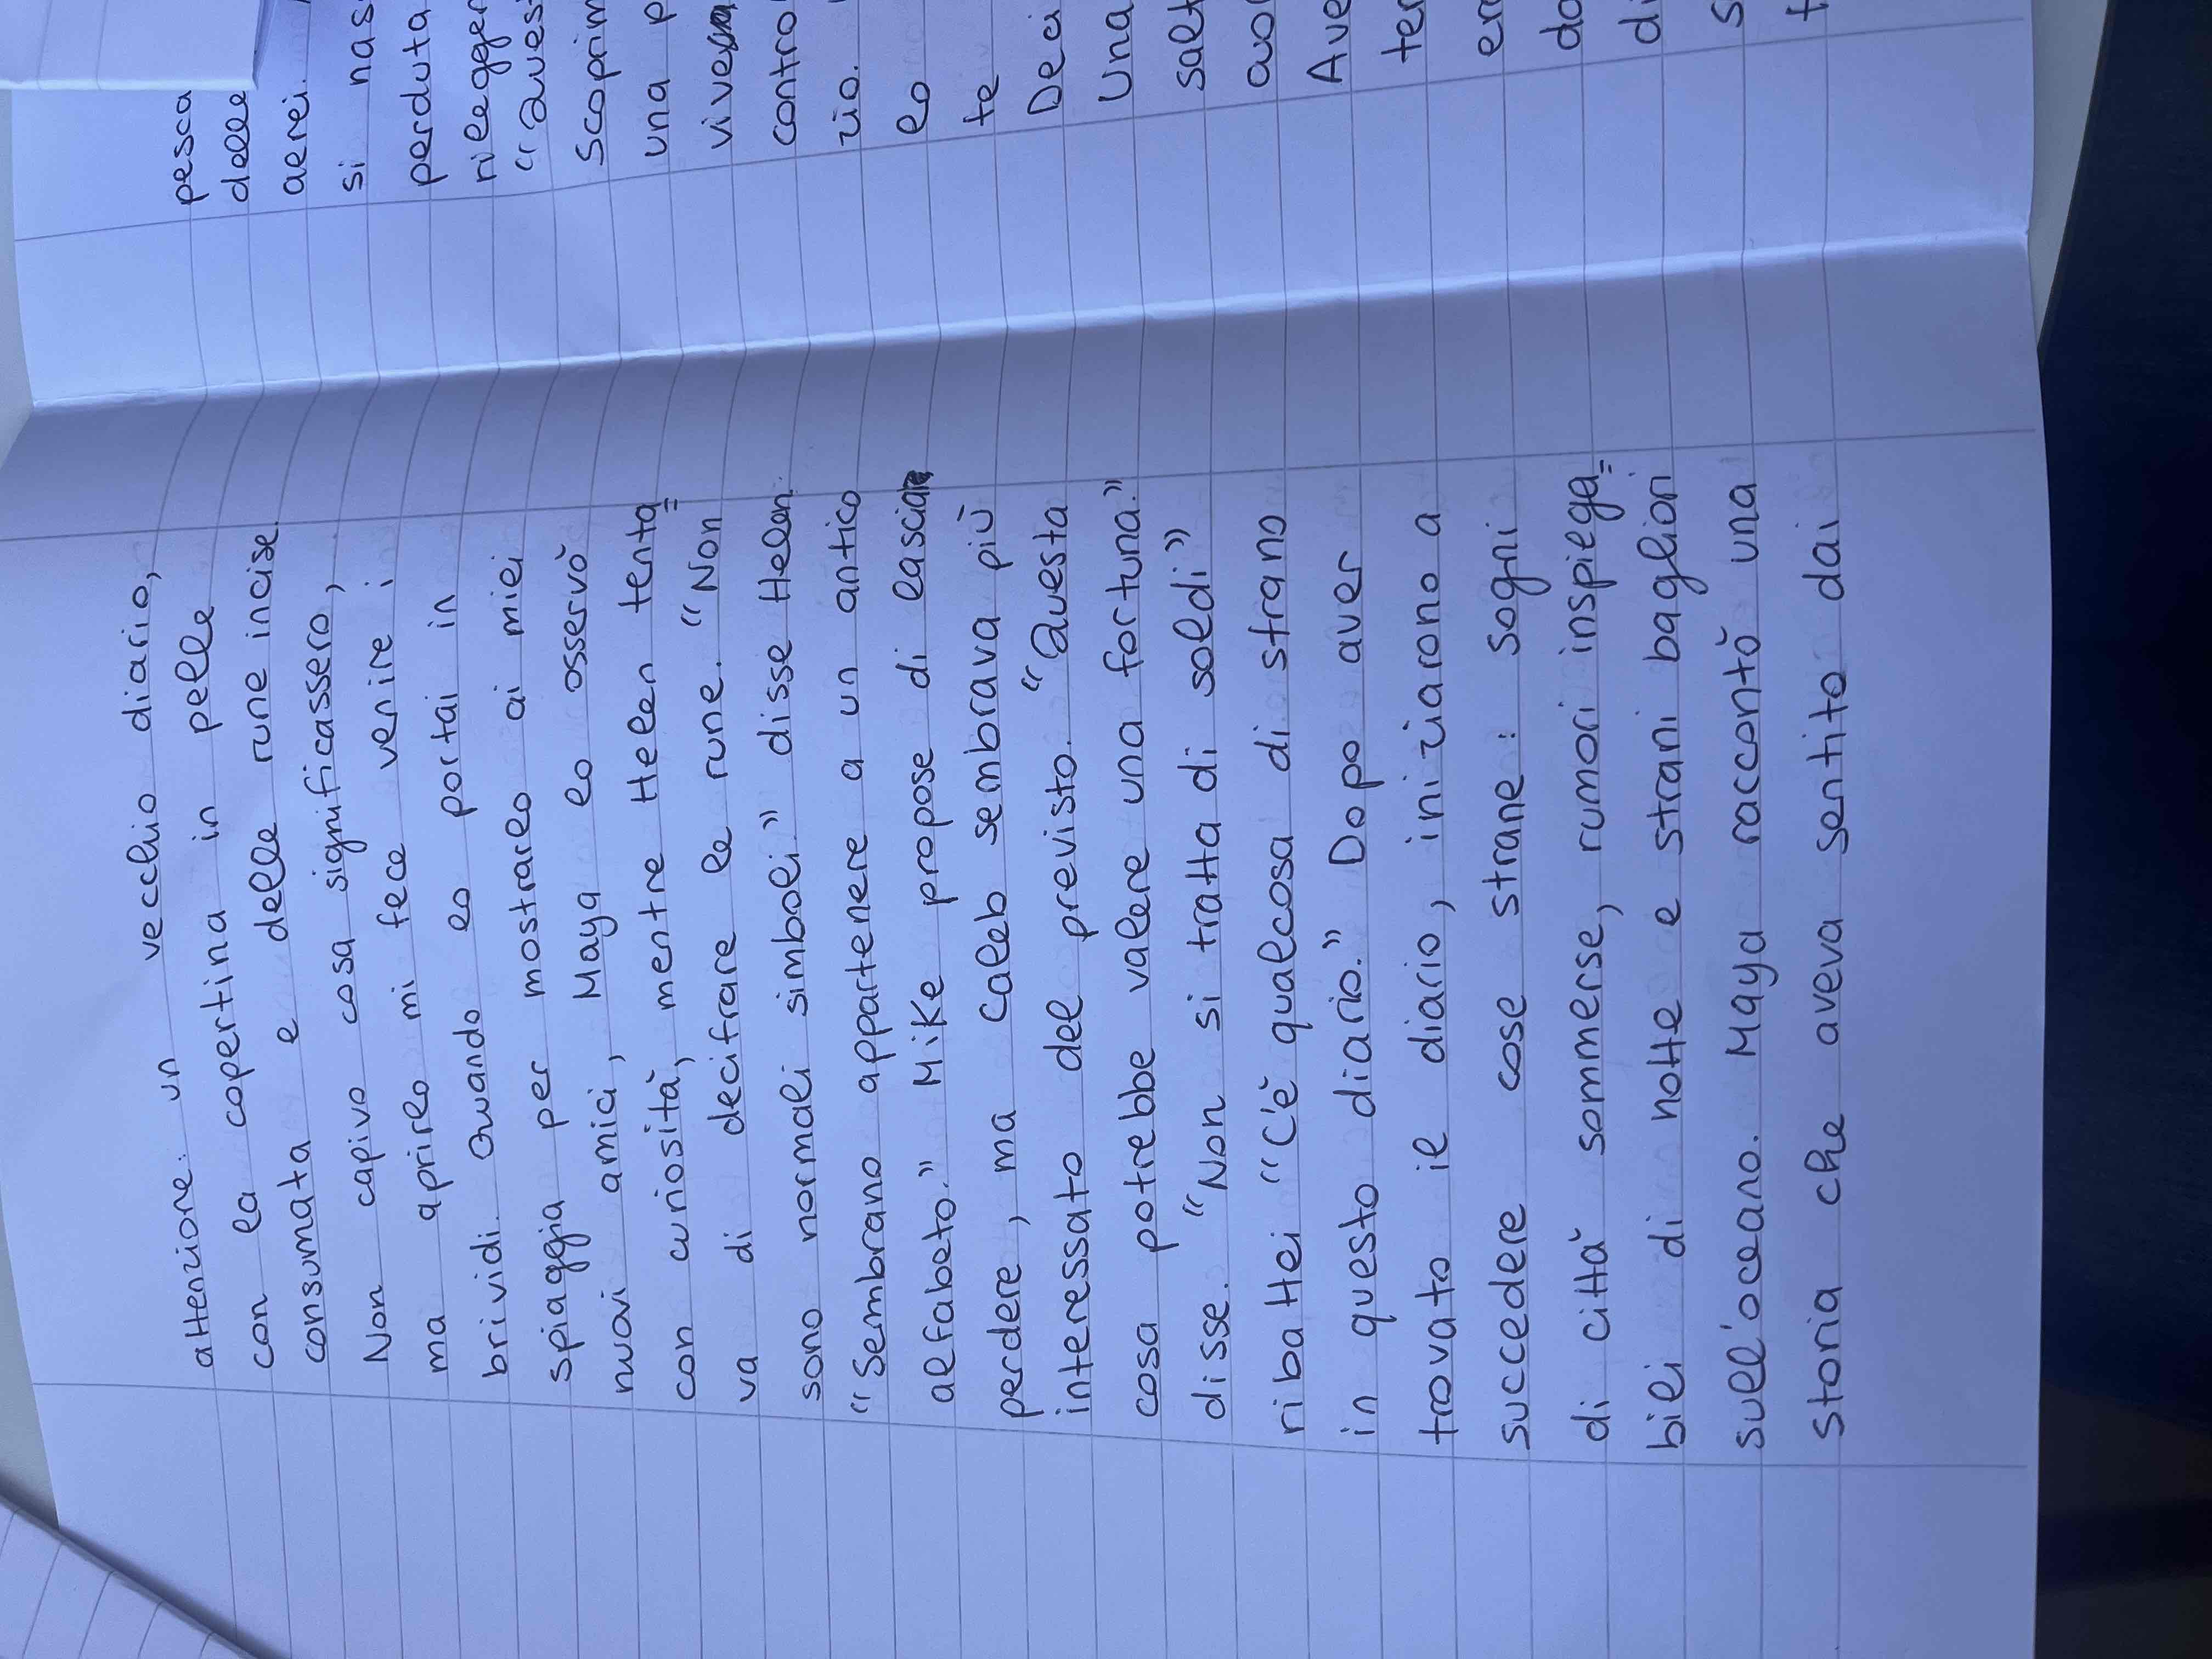 attenzione: un vecchio diario,
con la copertina in pelle
consumata e delle rune incise.
Non capivo cosa significassero,
ma aprirlo mi fece venire i
brividi. Quando lo portai in
spiaggia per mostrarlo ai miei
nuovi amici, Maya lo osservò
con curiosità, mentre Helen tenta=
va di decifrare le rune. “Non
sono normali simboli.” disse Helen.
“Sembrano appartenere a un antico
alfabeto.” Mike propose di lasciar
perdere, ma Caleb sembrava più
interessato del previsto. “Questa
cosa potrebbe valere una fortuna.”
disse. “Non si tratta di soldi”
ribattei “C'è qualcosa di strano
in questo diario.” Dopo aver
trovato il diario, iniziarono a
succedere cose strane: sogni
di città sommerse, rumori inspiega=
bili di notte e strani bagliori
sull'oceano. Maya raccontò una
storia che aveva sentito dai
pesca
delle
aerei.
si nas
perduta
rilegger
“Ques
Scoprim
una p
contro
zio.
lo
te
Deci
Una
salt
Ave
ter